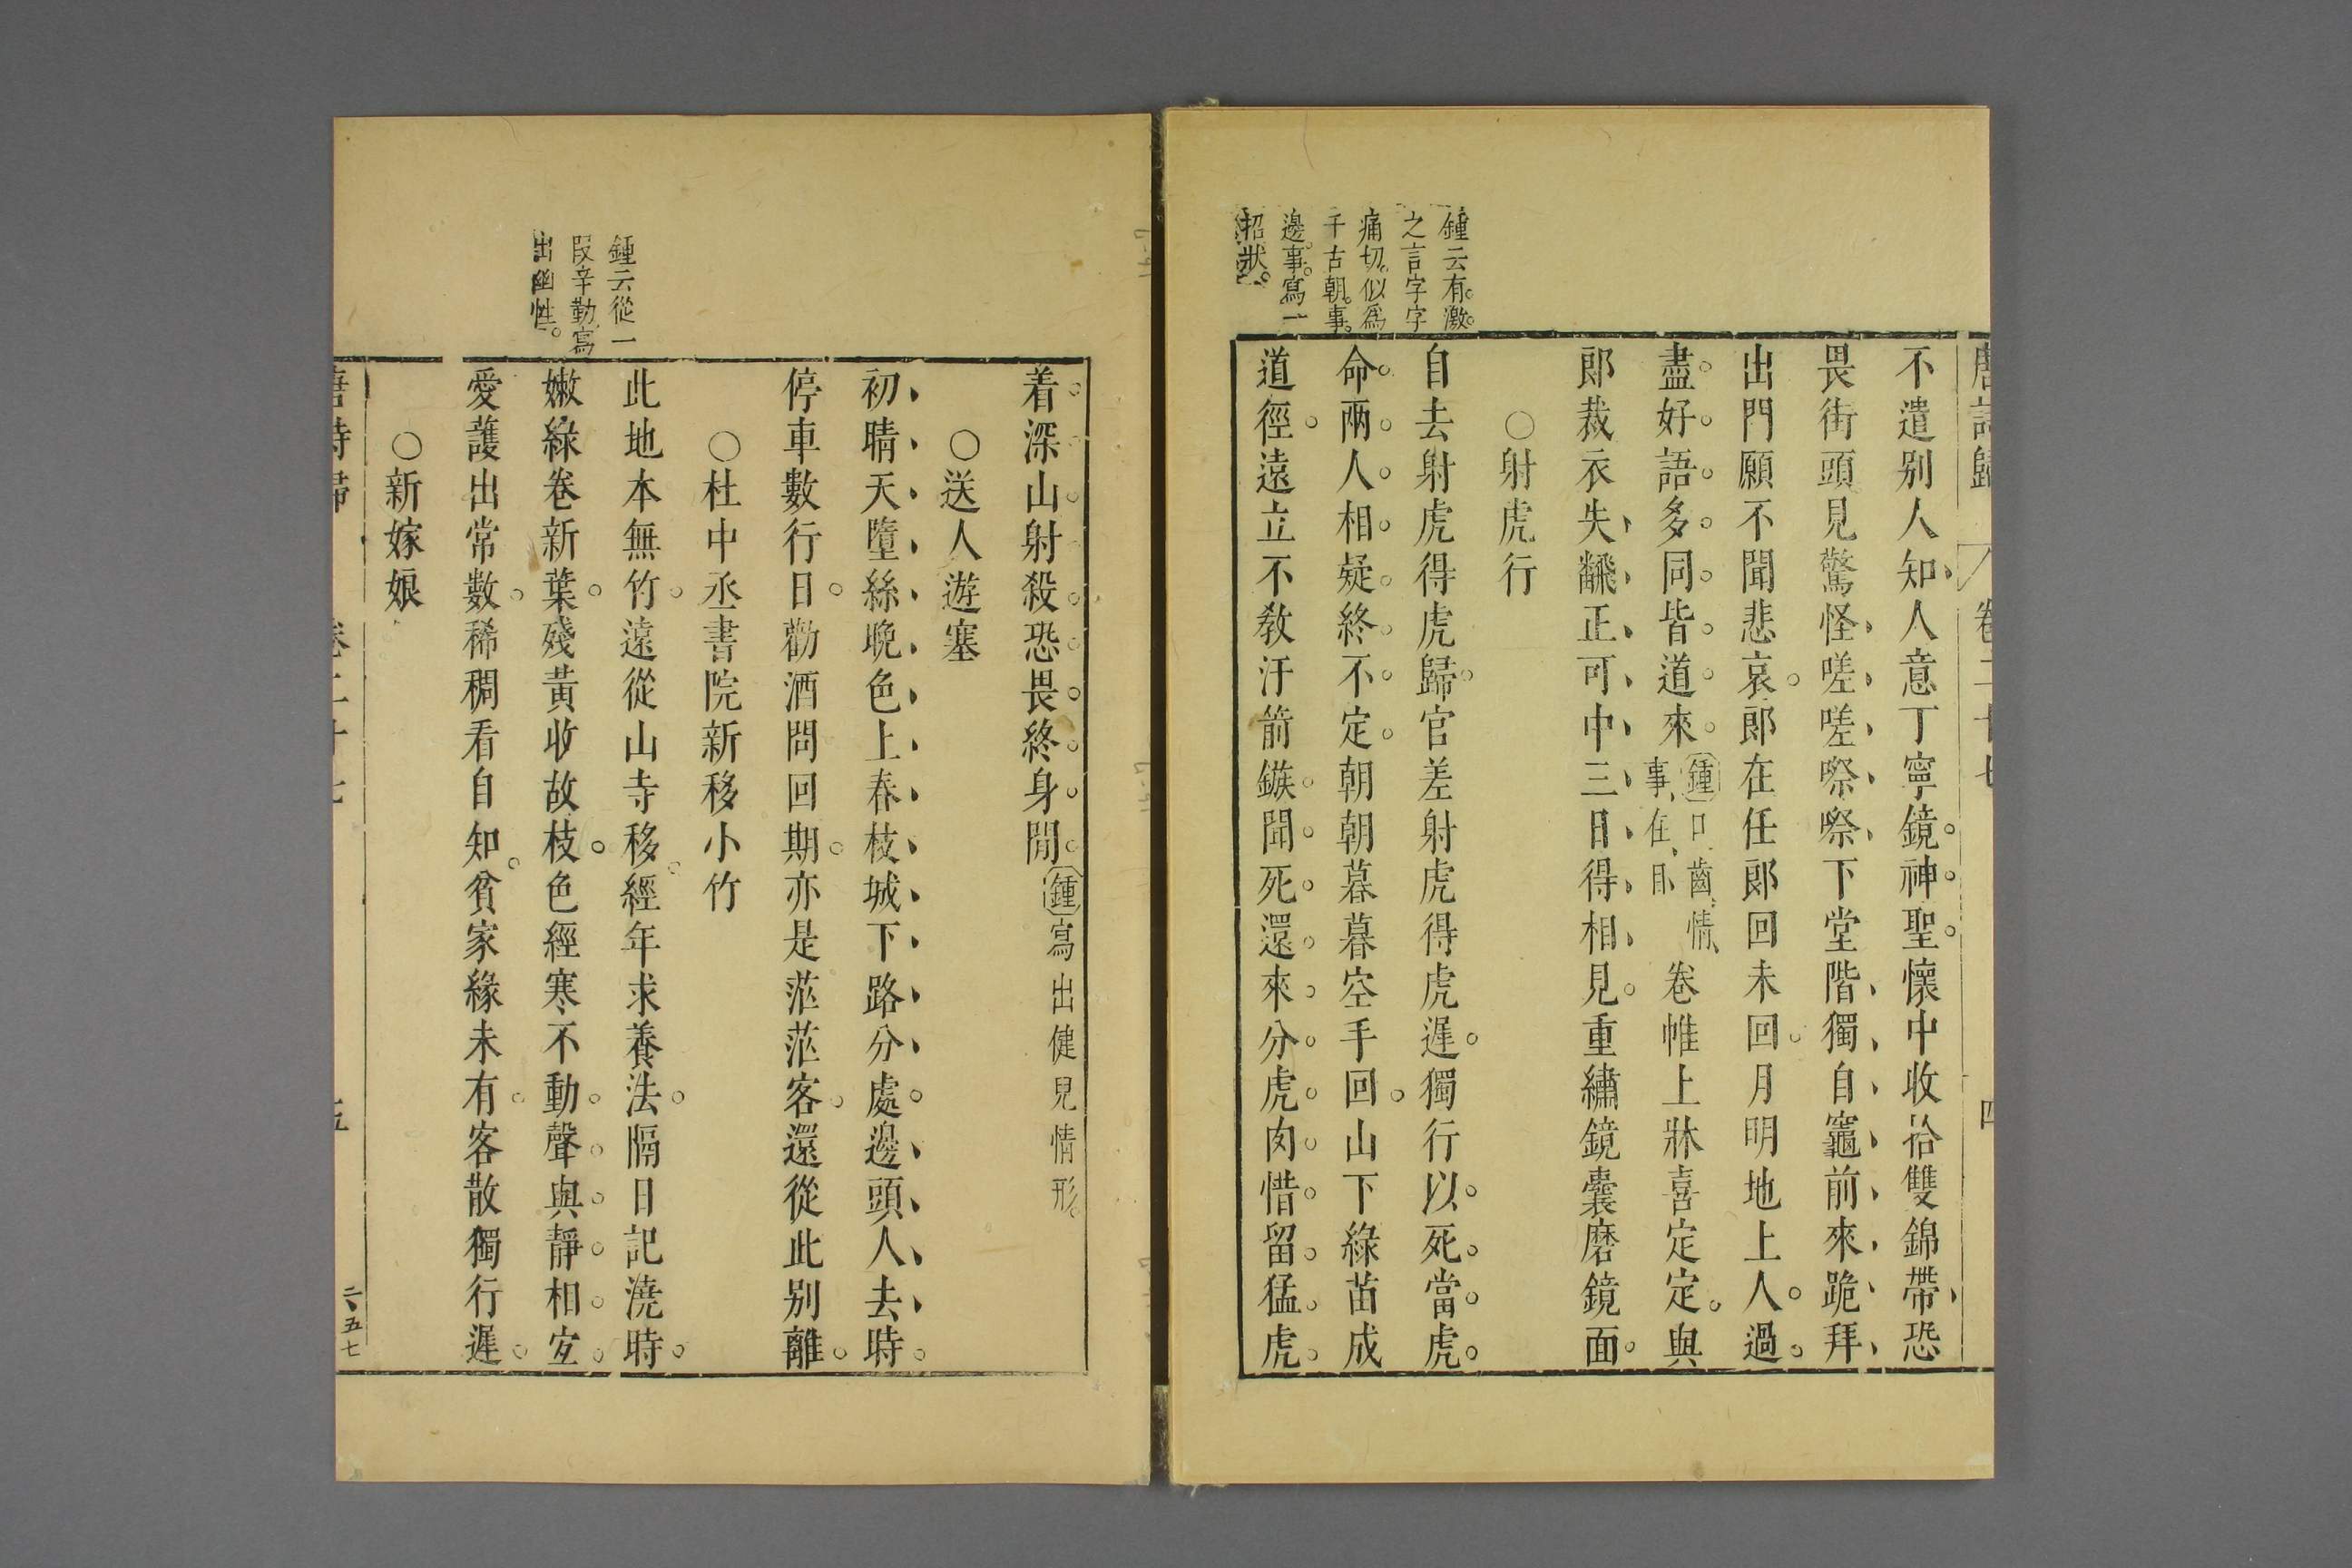 唐詩歸 卷二十七 四
不遣别人知人意丁寧鏡神聖懷中收拾雙錦帶恐
畏街頭見驚怪嗟嗟㗫㗫下堂階獨自竈前來跪拜
出門願不聞悲哀郎在任郎回未回月明地上人過
盡好語多同皆道來鍾口齒情事在目卷帷上牀喜定定與
郎裁衣失翻正可中三日得相見重繡鏡囊磨鏡面
○射虎行
自去射虎得虎歸官差射虎得虎遲獨行以死當虎
命兩人相疑終不定朝朝暮暮空手回山下綠苗成
道徑遠立不教汙箭鏃聞死還來分虎肉惜留猛虎
鍾云有激
之言字字
痛切似爲
千古朝事
邊事寫一
招狀
着深山射殺恐畏終身閒鍾寫出健兒情形
○送人遊塞
初晴天墮絲晩色上春枝城下路分處邊頭人去時
停車數行日勸酒問回期亦是茫茫客還從此别離
○杜中丞書院新移小竹
此地本無竹遠從山寺移經年求養法隔日記澆時
嫩綠卷新葉殘黃收故枝色經寒不動聲與靜相宜
愛護出常數稀稠看自知貧家緣未有客散獨行遲
○新嫁娘
鍾云從一
段辛勤寫
出幽性
唐詩歸 卷二十七 五
二、五七